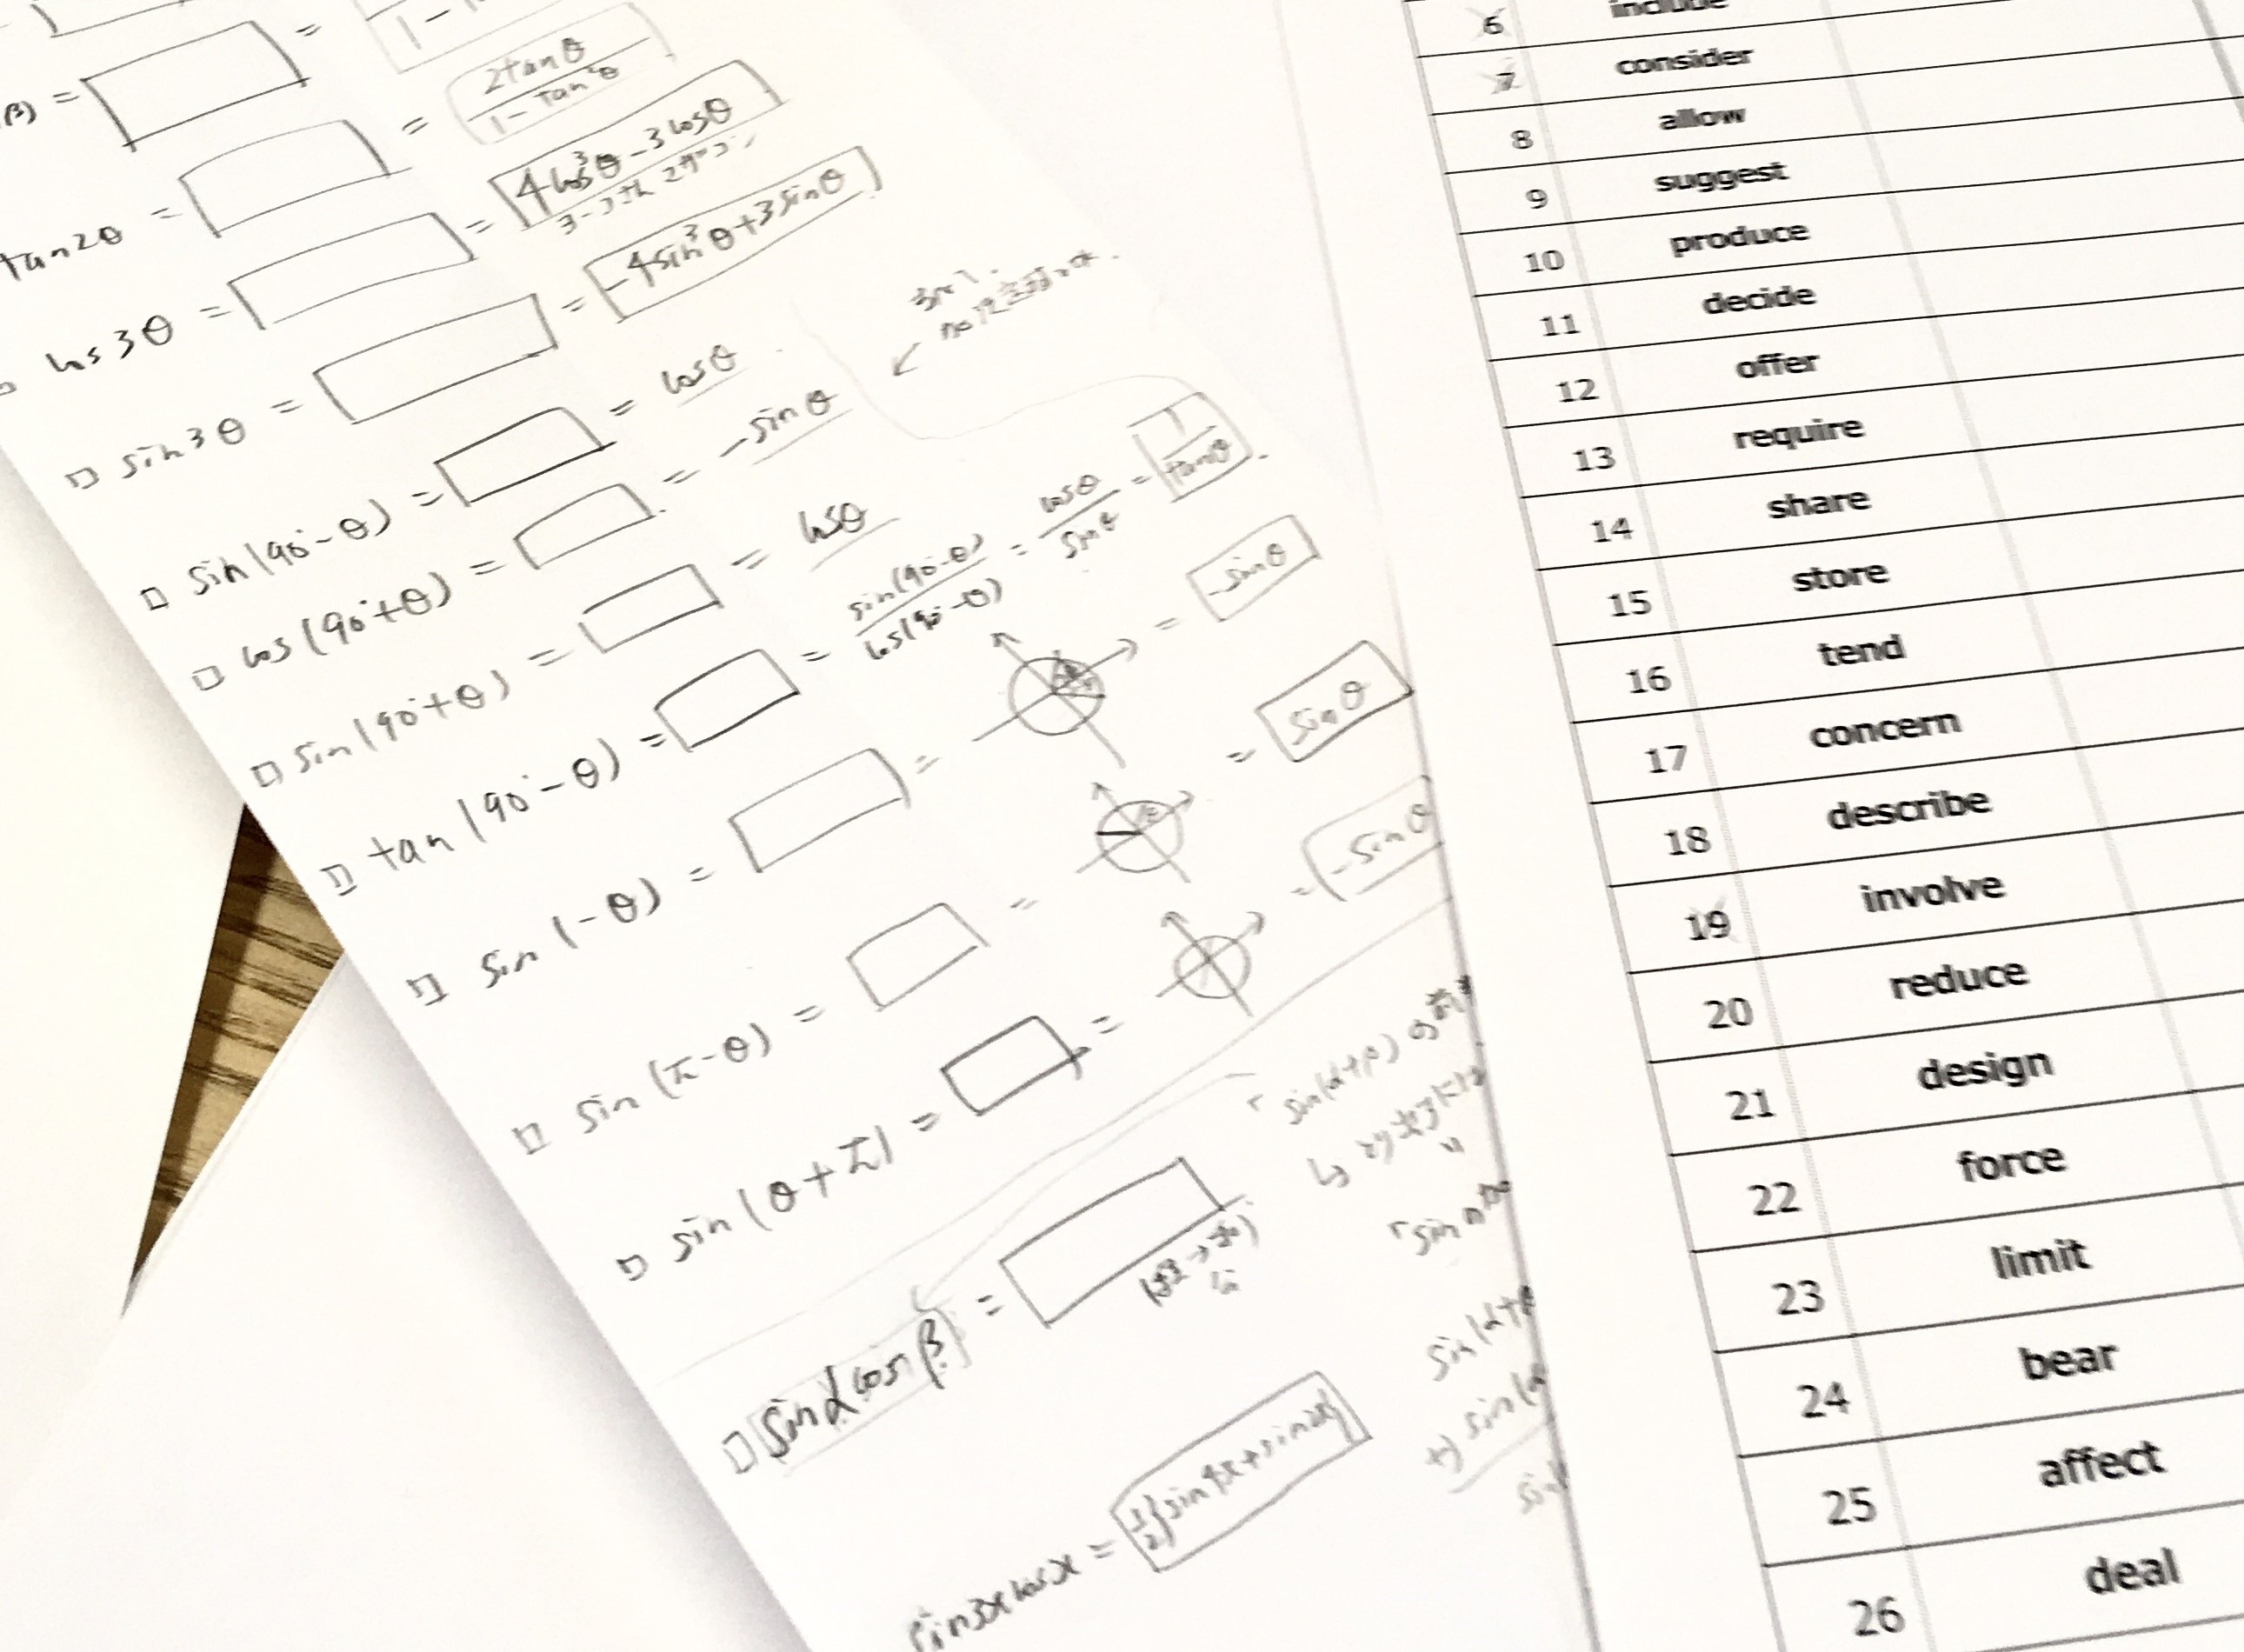 β) = =
tan2θ = = 2tanθ / 1 - tan²θ
cos3θ = = 4cos³θ - 3cosθ
sin3θ = = -4sin³θ + 3sinθ
sin(90°-θ) = = cosθ
cos(90°+θ) = = -sinθ
sin(90°+θ) = = cosθ
tan(90°-θ) = = sin(90°-θ) / cos(90°-θ) = cosθ / sinθ = 1 / tanθ
sin(-θ) = = = -sinθ
sin(π-θ) = = = sinθ
sin(θ+π) = = = -sinθ
sinαcosβ =
「sin(α+β)の
「sinの
sin(α+β
+) sin(α
sin3xcosx = 1/2{sin4x+sin2x}
6 include
7 consider
8 allow
9 suggest
10 produce
11 decide
12 offer
13 require
14 share
15 store
16 tend
17 concern
18 describe
19 involve
20 reduce
21 design
22 force
23 limit
24 bear
25 affect
26 deal